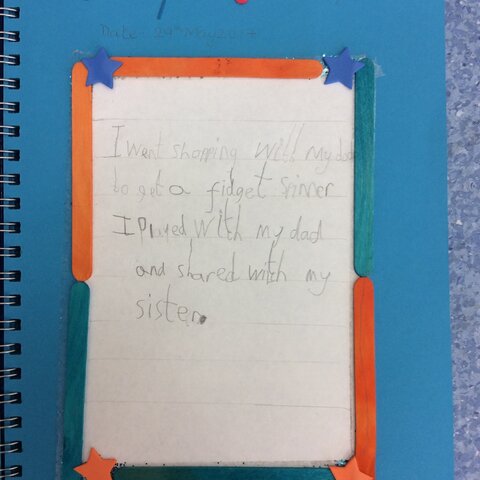 Date: 29th May 2017
I went shopping with my dad
to get a fidget sinner
I Played with my dad
and shared with my
sister.